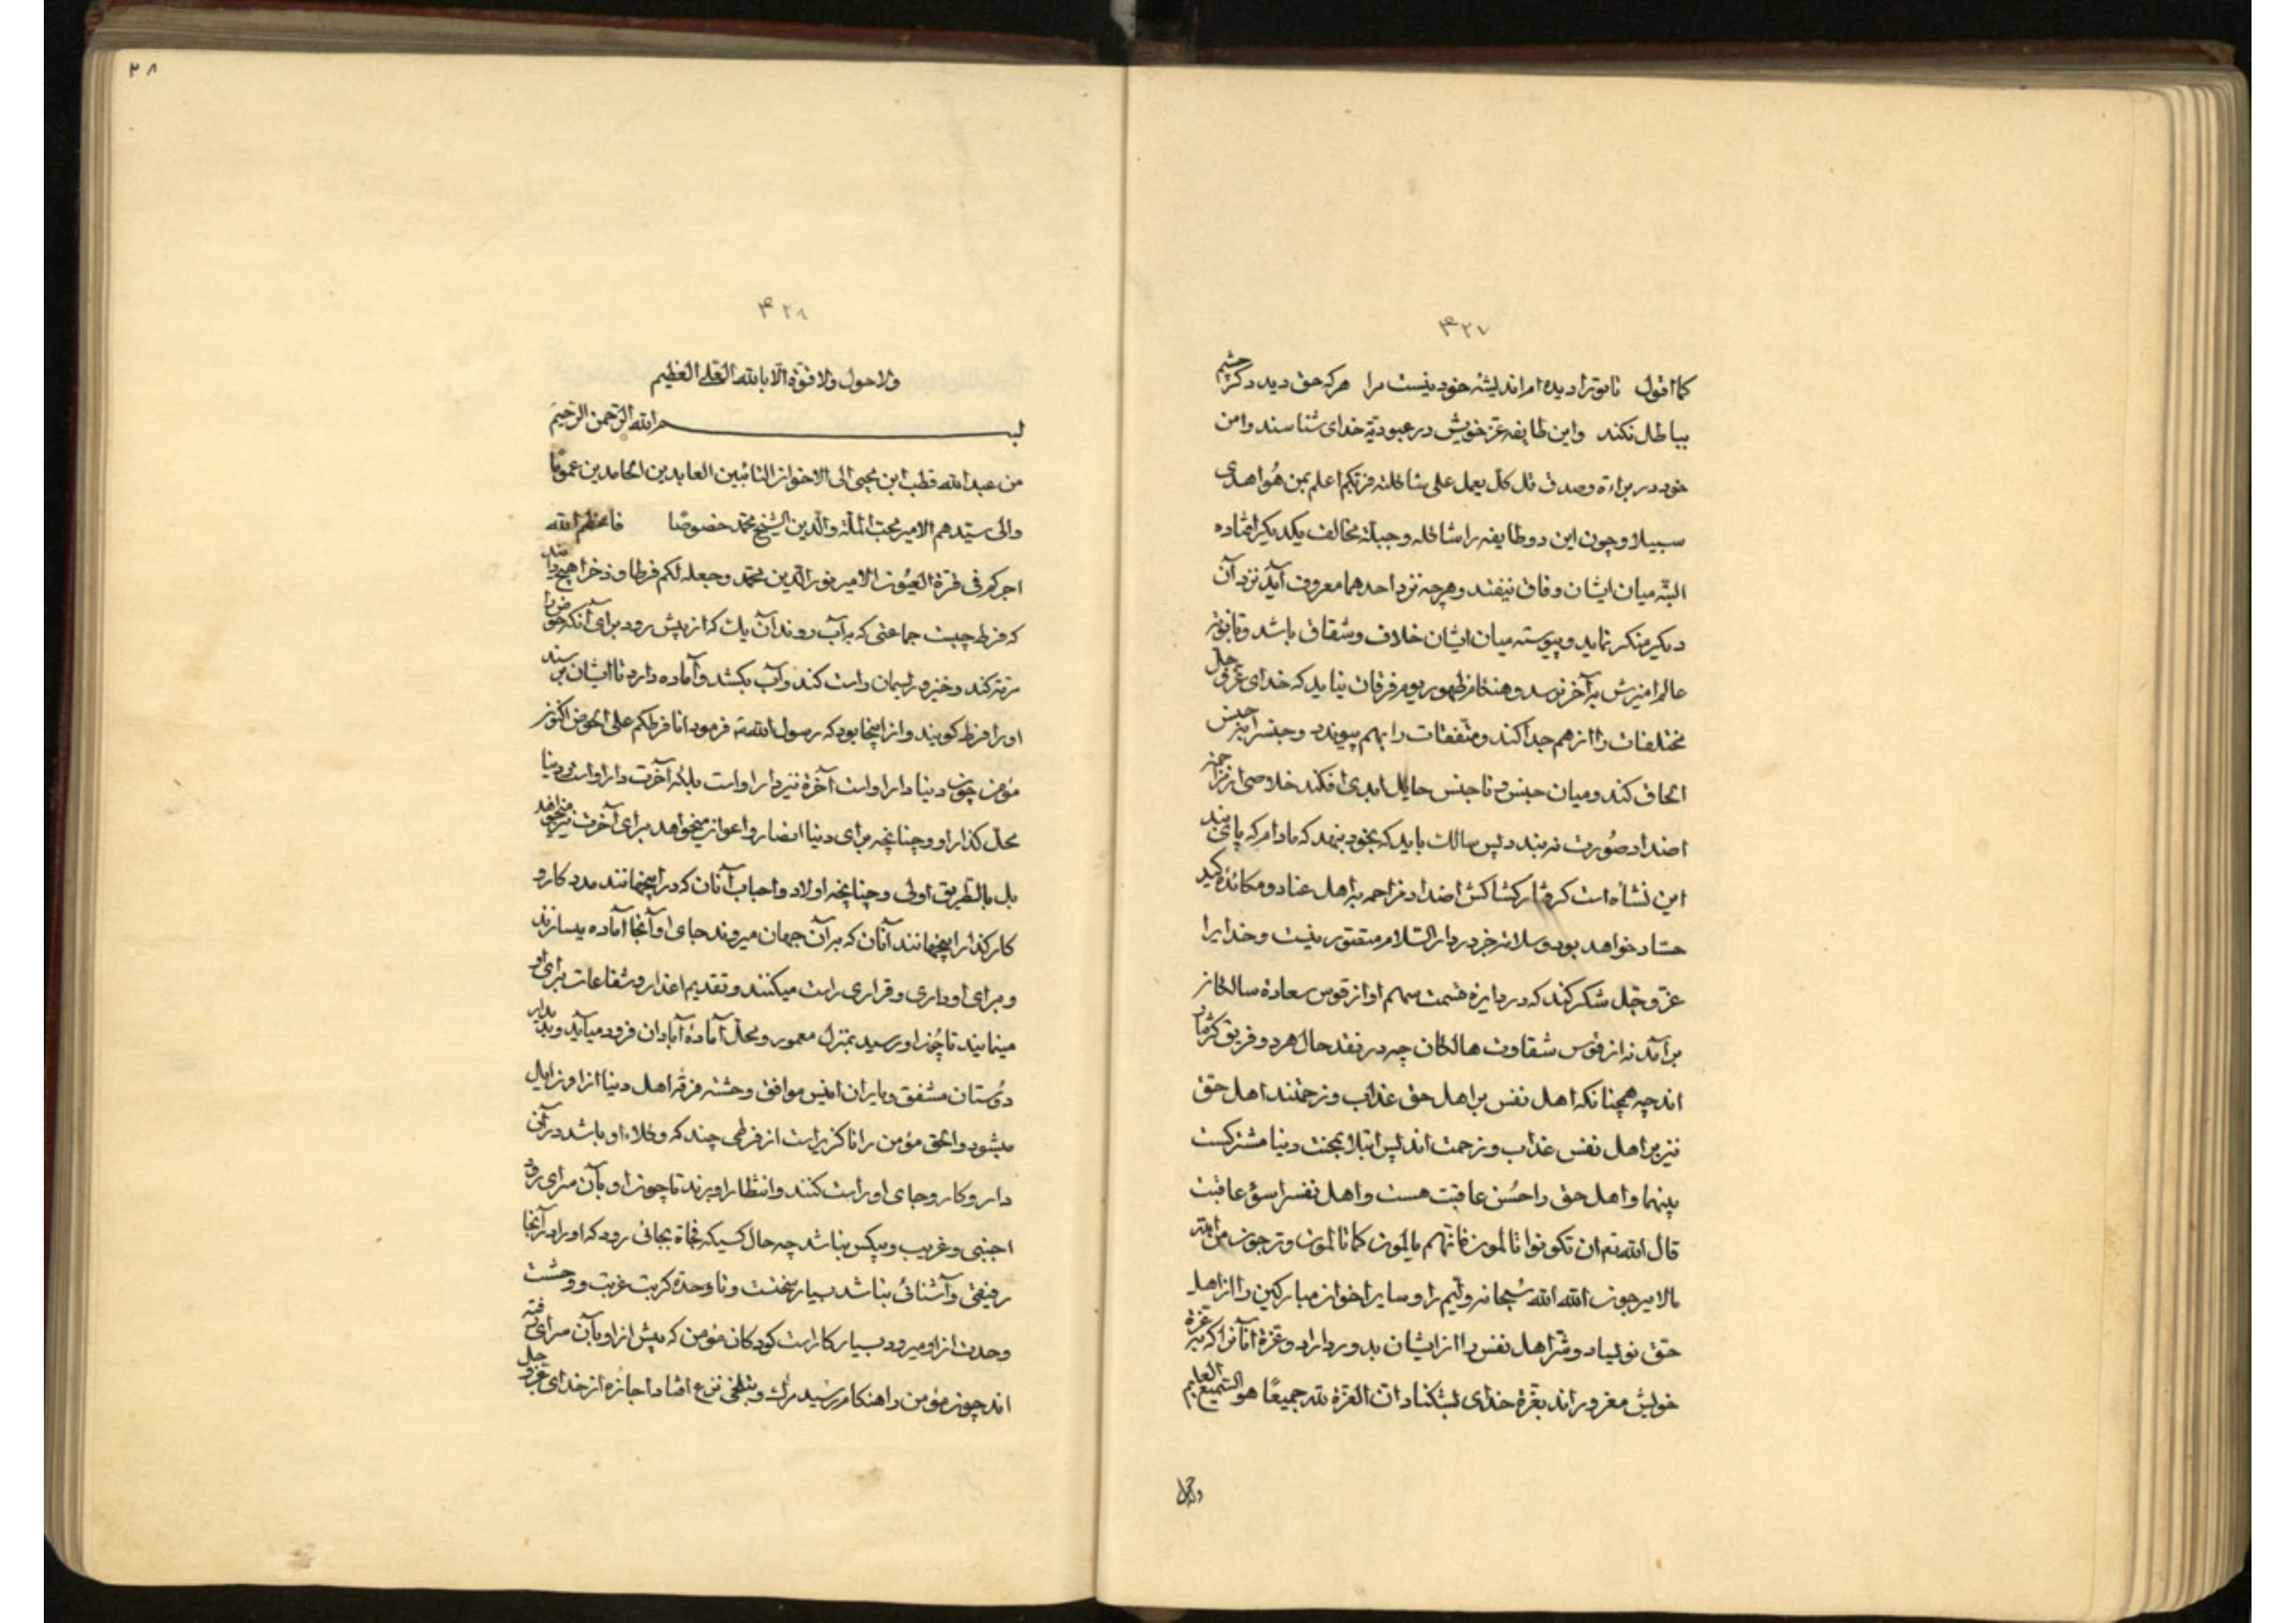 ۴۲۷
کما اقول تا بتو را دیده ام اندیشه خود نیست مرا هر که حق دید دگر چشم
بباطل نکند واین طایفه عز خویش در عبودیة خدای شناسند وامن
خود در براءة وصدق قل کل یعمل علی شاکلته فربکم اعلم بمن هو اهدی
سبیلا وچون این دو طایفه را شاکله وجبلة مخالف یکدیکر افتاده
البته میان ایشان وفاق نیفتد وهرچه نزد احدهما معروف آید نزد آن
دیکر منکر نماید وپیوسته میان ایشان خلاف وشقاق باشد وتا نوبة
عالم امیزش به آخر نرسد وهنکام ظهور یوم فرقان نیاید که خدای عز وجل
مختلفات را از هم جدا کند ومتفقات را بهم پیوندد وجنس را بجنس
الحاق کند ومیان جنس ونا جنس حایل ابدی افکند خلاصی از مزاحمة
اضداد صورت نه بندد پس سالک باید که بخود بنهد که مادام که پای بند
این نشأه است کرفتار کشاکش اضداد مزاحمه اهل عناد ومکائد کید
حساد خواهد بود وسلامة جز در دار السلام متصور نیست وخدایرا
عز وجل شکر کند که در دایره قسمت سهم او از قوس سعادة سالکان
برآمد نه از قوس شقاوت هالکان چه در نقد حال هر دو فریق کرفتار
اند چه همچنانکه اهل نفس بر اهل حق عذاب وزحمتند اهل حق
نیز بر اهل نفس عذاب وزحمت اند پس ابتلا بمحنت دنیا مشترکست
بینهما واهل حق را حسن عاقبت هست واهل نفس را سوء عاقبت
قال الله تع ان تکونوا تالمون فانهم یالمون کما تالمون وترجون من الله
مالا یرجون الله الله سبحانه وایم را وسایر اخوان مبارکین را از اهل
حق نویساد وشر اهل نفس را از ایشان بدور دارد وعزة آنانرا که بر عزة
خویش مغرورند بعزة خدای بشکناد ان العزة لله جمیعا هو السمیع العلیم
ولاحول
۳۸
۴۲۸
ولا حول ولا قوة الا بالله العلی العظیم
بسم الله الرحمن الرحیم
من عبد الله قطب ابن یحیی الی الاخوان التائبین العابدین الحامدین عموما
والی سیدهم الامیر محب الملة والدین الشیخ محمد خصوصا فاعظم الله
اجرکم فی قرة العیون الامیر نور الدین محمد وجعله لکم فرطا وذخرا هیچ دانند
که فرط چیست جماعتی که به آب روند آن یک که از پیش رود برای آنکه حوض را
مرتبکند وخیزد ریسمان راست کند وآب بکشد وآماده دارد تا ایشان برسند
او را فرط کویند واز اینجا بود که رسول الله ص فرمود انا فرطکم علی الحوض اکنون
مؤمن چون دنیا دار او است آخرة نیز دار او است بلکه آخرت دار او است ودنیا
محل کذار او وچنانچه برای دنیا انصار واعوان میخواهد برای آخرت نیز میخواهد
بل بالطریق اولی وچنانچه اولاد واحباب آنان که در اینجهانند مدد کار و
کارکذار اینجهانند آنان که بر آن جهان میروند جای او آنجا آماده میسازند
وبرای او داری وقراری راست میکنند وتقدیم اعذار وشفاعات برای او
مینمایند تا چون او رسید بمنزل معمور ومحل آماده آبادان فرود میآید وبدیدار
دوستان مشفق ویاران انیس موافق وحشة فرقة اهل دنیا از او زایل
میشود والحق مؤمن را ناکزیر است از فرطی چند که وکلاء او باشد در آن
دار وکار وجای او راست کنند وانتظار او برند تا چون او بآن سرای رود
اجنبی وغریب وبیکس نباشد چه حال کسیکه فجاة بجائی رود که او را در آنجا
رفیقی وآشنائی نباشد بسیار سخت وبا وحدة کربت غربت ووحشت
وحدت از او میرود بسیار کار است کودکان مؤمن که پیش از او بآن سرای رفته
اند چون مؤمن را هنکام رسید مرک وبتلخی نزع افتاد اجازه از خدای عز وجل